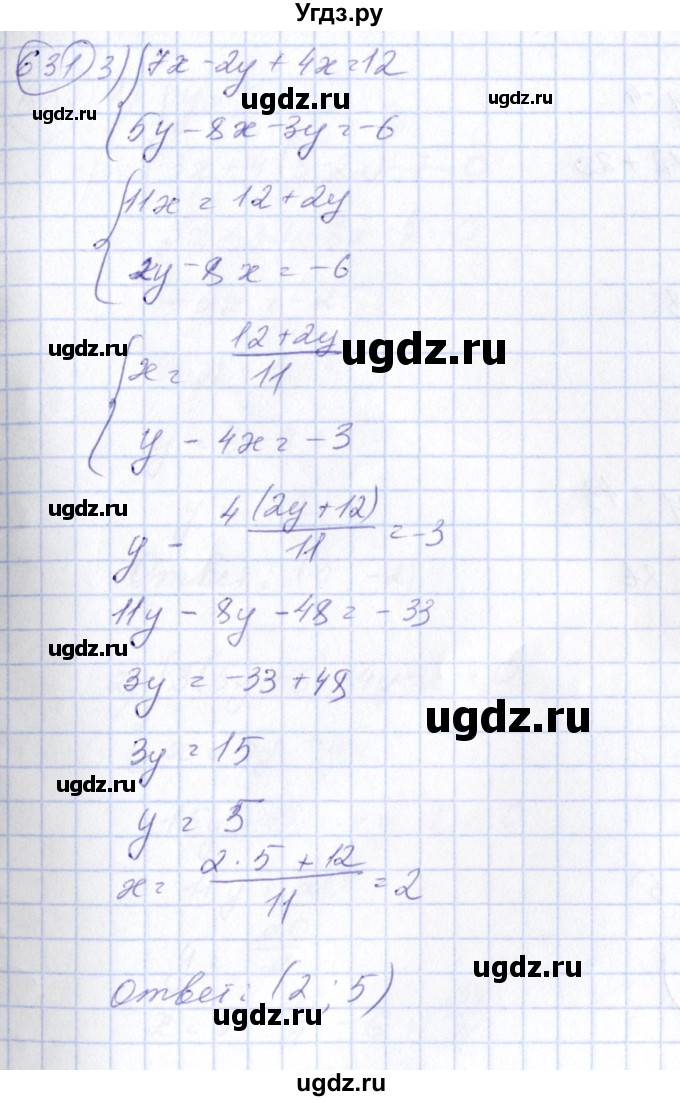 Угдз.ру
631 3) { 7x - 2y + 4x = 12
ugdz.ru
ugdz.ru
ugdz.ru
5y - 8x - 3y = -6
{ 11x = 12 + 2y
2y - 8x = -6
{ x = (12 + 2y)/11
ugdz.ru
ugdz.ru
y - 4x = -3
ugdz.ru
y - 4(2y + 12)/11 = -3
11y - 8y - 48 = -33
ugdz.ru
3y = -33 + 48
ugdz.ru
3y = 15
ugdz.ru
y = 5
x = (2 · 5 + 12)/11 = 2
ugdz.ru
Ответ: (2 ; 5)
ugdz.ru
ugdz.ru